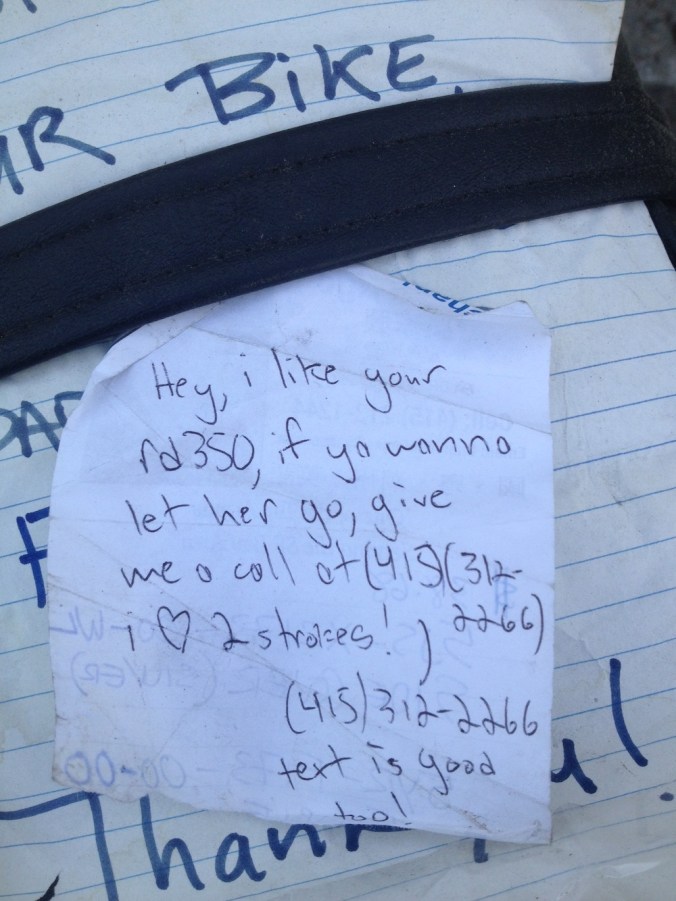 UR BIKE.
Hey, i like your
rd350, if ya wanna
let her go, give
me a call at (415)(312-
2266)
i ♡ 2 strokes!
(415)312-2266
text is good
too!
Thank